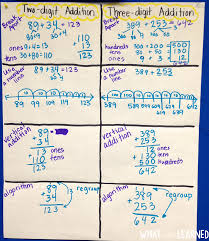 Two-digit Addition
Three-digit Addition
Break Apart
89 + 34 = 123
80+9 30+4
ones 9+4=13
tens 80+30=110
110
13
123
Break Apart
389 + 253 = 642
hundreds 300+200=500
tens
ones
500
130
12
642
Use a number line
89 + 34 = 123
89 99 109 119 123
Use a number line
389 + 253 =
vertical addition
89
+34
13 ones
+110 tens
123
vertical addition
389
+253
12 ones
130 tens
+500 hundreds
642
algorithm
89
+34
123
regroup
algorithm
389
+253
642
regroup
WHAT LEARNED